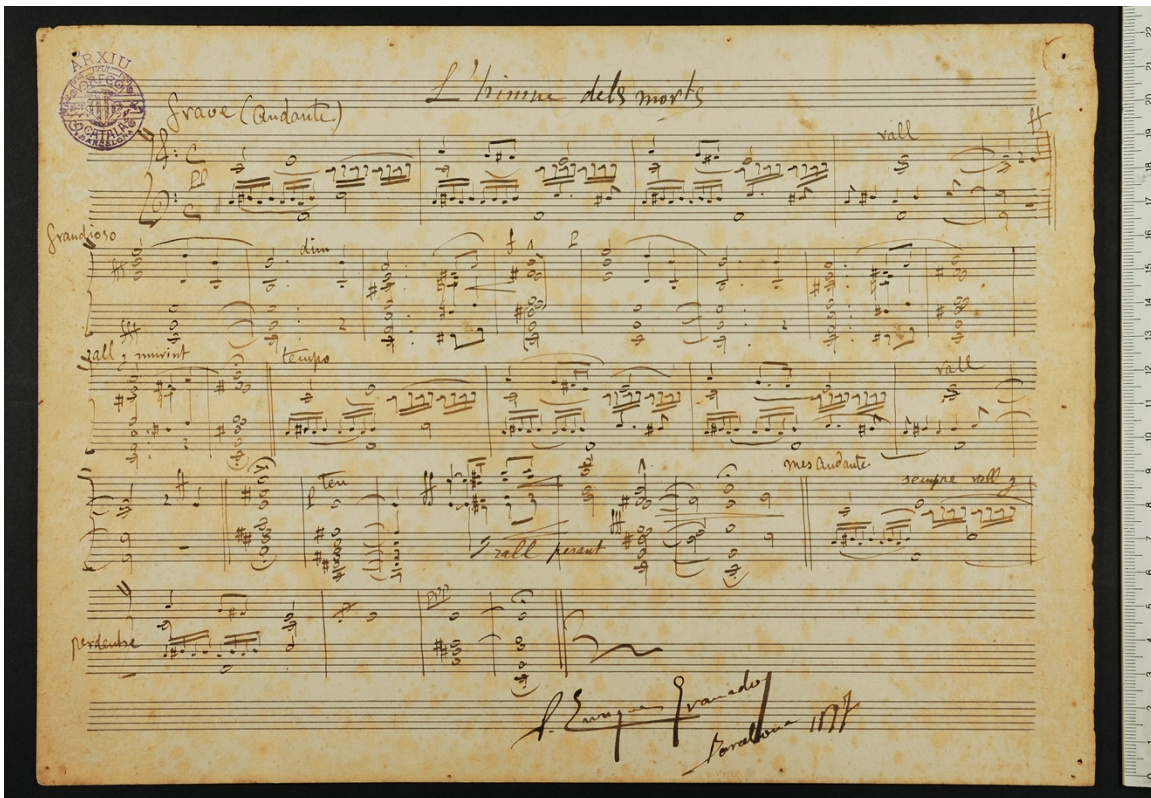 ARXIU
ORFEÓ CATALÀ
BARCELONA
L'himne dels morts
Grave (Andante)
pp
rall
ff
Grandioso
ff
dim
f
p
fff
rall y murint
tempo
rall
f
p
ten
ff
fff
mes Andante
sempre rall y
rall pesant
perdentse
ppp
E. Enrique Granados
Barcelona 1897